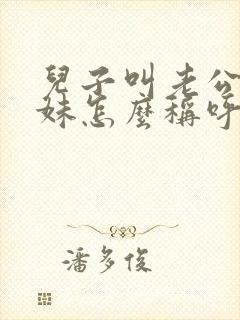 兒子叫老公
妹怎麼稱呼
潘多俊